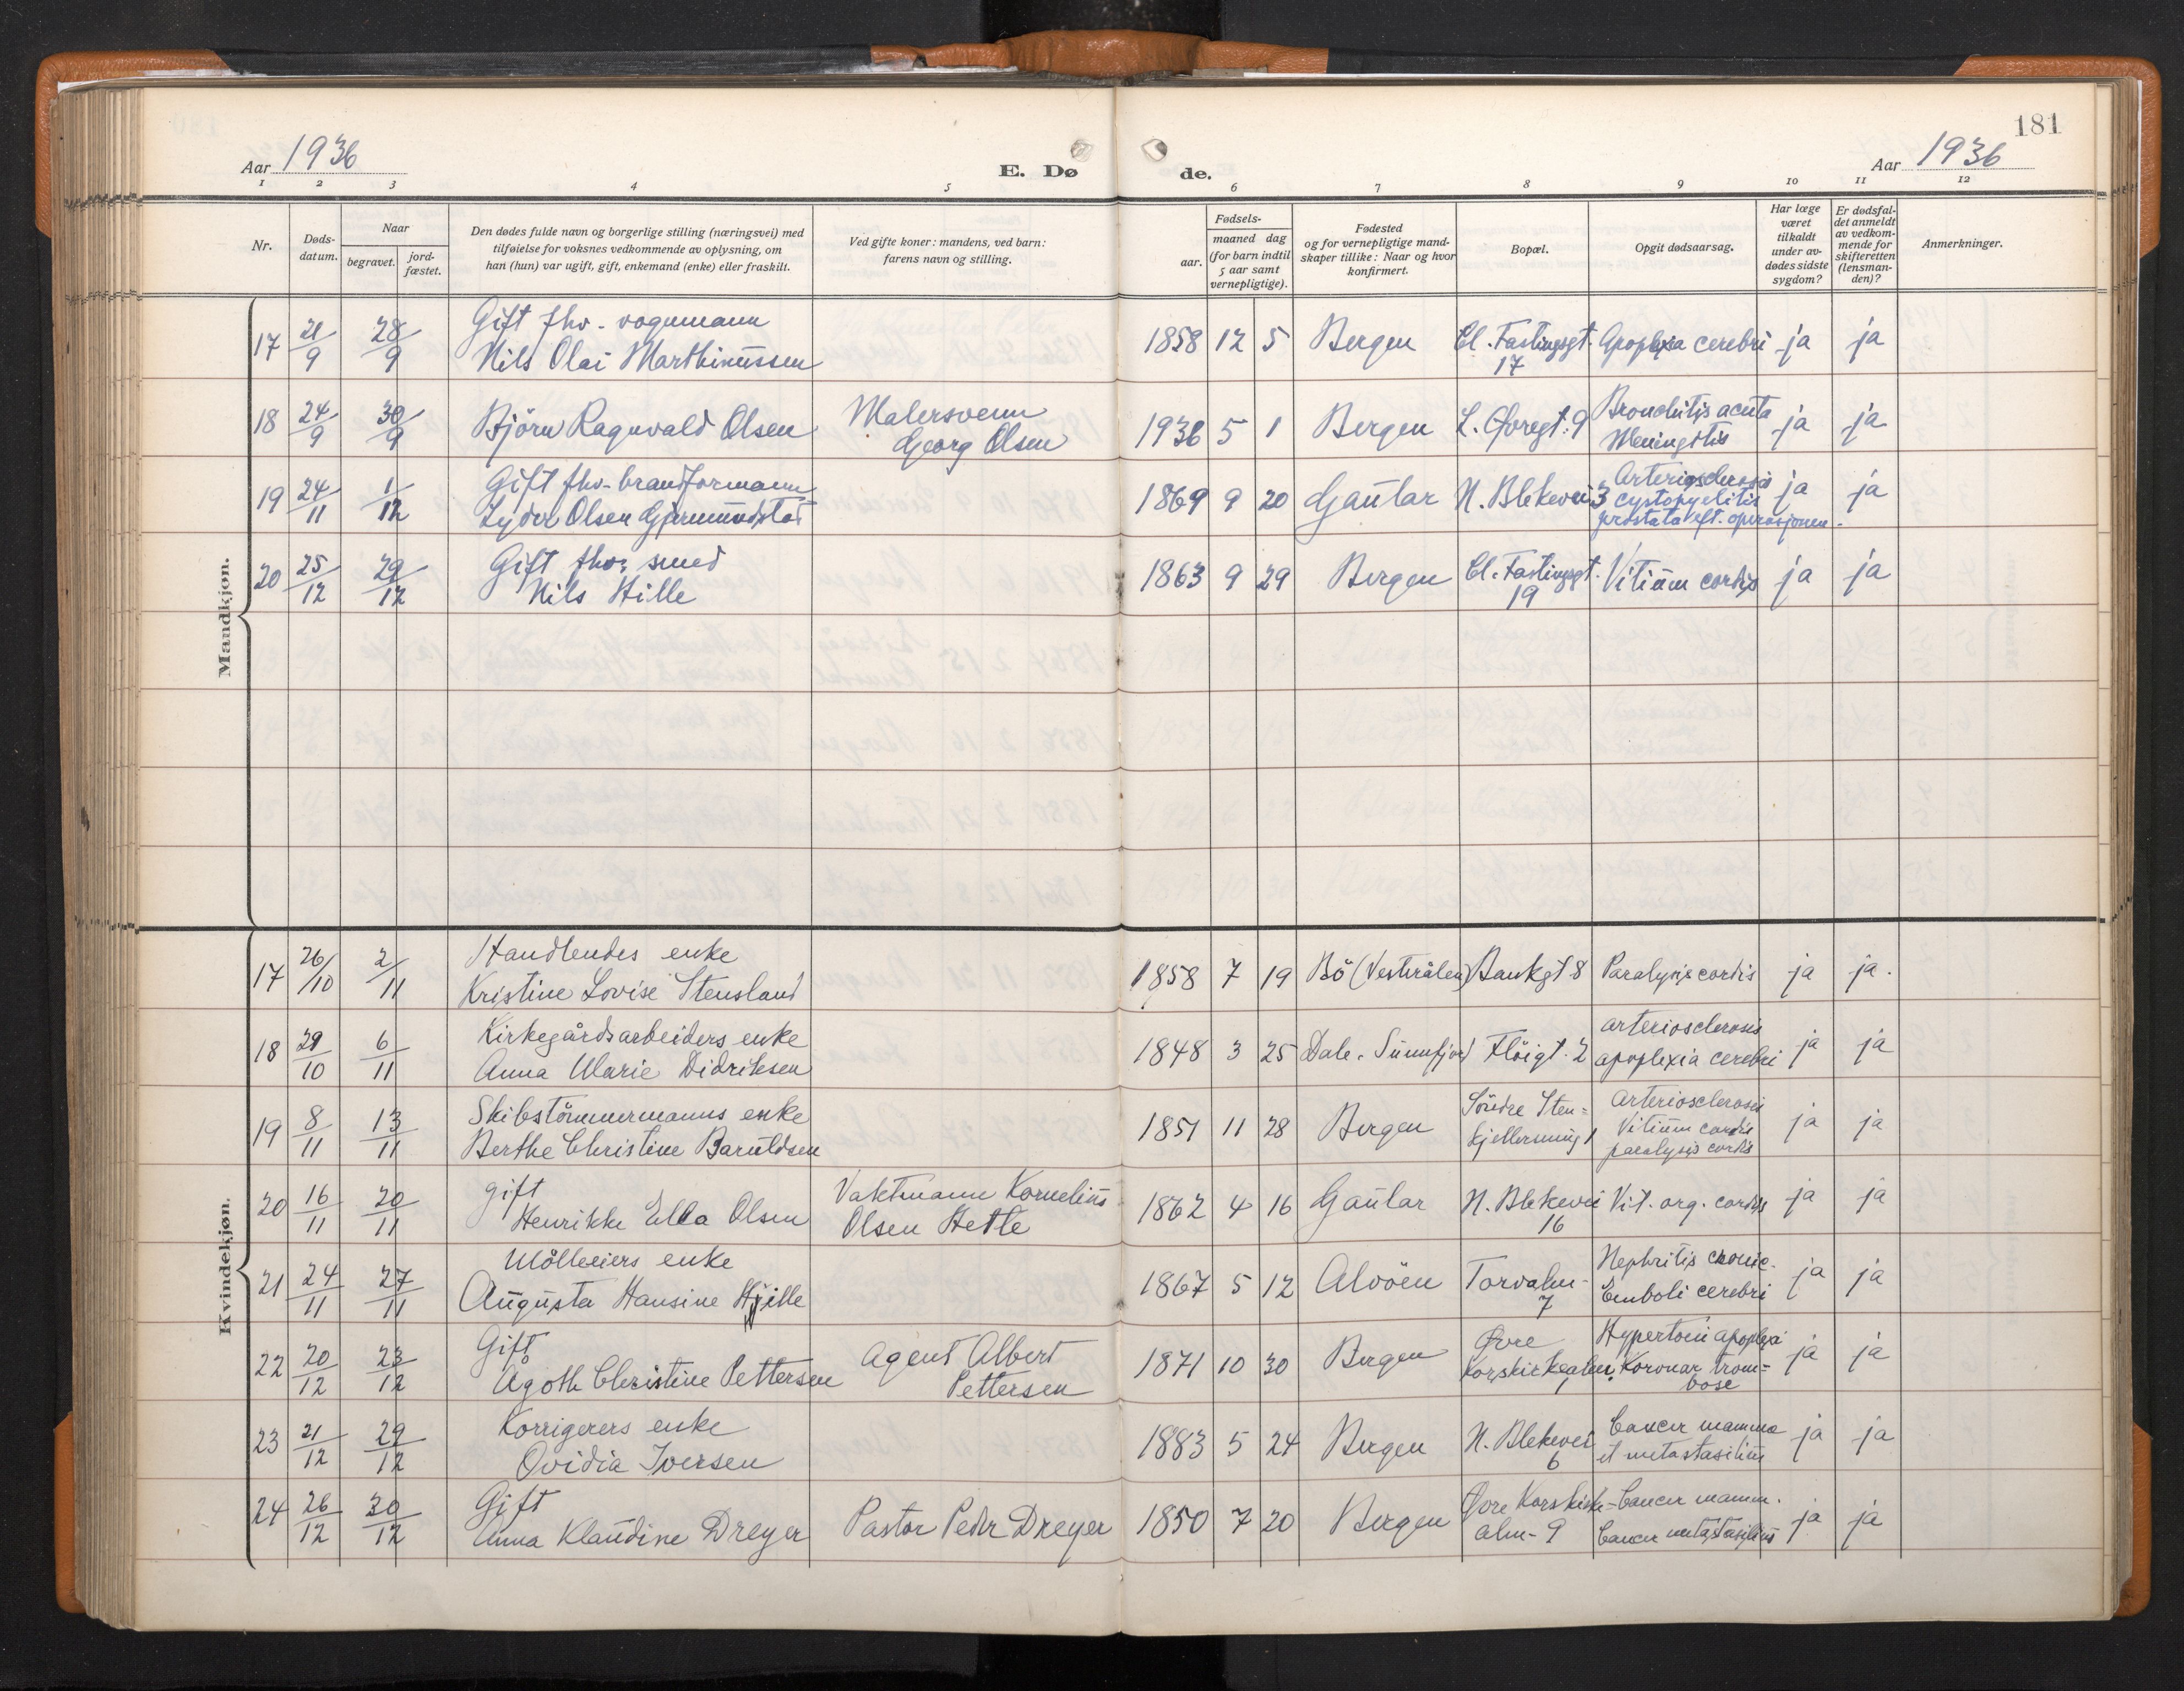 181
Aar 1936
E. Dø
de.
Aar 1936
1 2 3 4 5 6 7 8 9 10 11 12
Nr.
Døds-
datum.
Naar
begravet.
jord-
fæstet.
Den dødes fulde navn og borgerlige stilling (næringsvei) med
tilføielse for voksnes vedkommende av oplysning, om
han (hun) var ugift, gift, enkemand (enke) eller fraskilt.
Ved gifte koner: mandens, ved barn:
farens navn og stilling.
Fødsels-
aar.
maaned dag
(for barn indtil
5 aar samt
vernepligtige).
Fødested
og for vernepligtige mand-
skaper tillike: Naar og hvor
konfirmert.
Bopæl.
Opgit dødsaarsag.
Har læge
været
tilkaldt
under av-
dødes sidste
sygdom?
Er dødsfal-
det anmeldt
av vedkom-
mende for
skifteretten
(lensman-
den)?
Anmerkninger.
Mandkjøn.
17 21/9 28/9 Gift fhv. vognmann
Nils Olai Marthinussen
1858 12 5 Bergen Cl. Fastingsgt. 17 Apoplexia cerebri ja ja
18 24/9 30/9 Björn Ragnvald Olsen
Malersvenn
Georg Olsen
1936 5 1 Bergen L. Øvregt. 9 Bronchitis acuta
Meningitis ja ja
19 24/11 1/12 Gift fhv. brandformann
Lyder Olsen Gjermundstad
1869 9 20 Gaular N. Blekevei 3 Arteriosclerosis
cystopyelitis
prostata eft. operasjonen. ja ja
20 25/12 29/12 Gift fhv. smed
Nils Hille
1863 9 29 Bergen Cl. Fastingsgt. 19 Vitium cordis ja ja
Kvindekjøn.
17 26/10 2/11 Handlendes enke
Kristine Lovise Stensland
1858 7 19 Bö (Vesterålen) Bankgt 8 Paralysis cordis ja ja.
18 29/10 6/11 Kirkegårdsarbeiders enke
Anna Marie Didriksen
1848 3 25 Dale. Sunnfjord Flöigt. 2 arteriosclerosis
apoplexia cerebri ja ja
19 8/11 13/11 Skibstömmermanns enke
Berthe Christine Baruldsen
1851 11 28 Bergen Söndre Sten-
kjellersmug 1 Arteriosclerosis
Vitium cordis
paralysis cordis ja ja
20 16/11 20/11 gift
Henrikke Ella Olsen
Vaktmann Kornelius
Olsen Hetle
1862 4 16 Gaular N. Blekevei
16 Vit. org. cordis ja ja
21 24/11 27/11 Mölleeiers enke
Augusta Hansine Hjille
1867 5 12 Alvöen Torvalm-
7 Nephritis cronic.
Emboli cerebri ja ja
22 20/12 23/12 Gift
Agoth Christine Pettersen
Agent Albert
Pettersen
1871 10 30 Bergen Øvre
Korskirkealm. 1 Hypertoni apoplexi
Koronar trom-
bose ja ja
23 21/12 29/12 Korrigerers enke
Ovidia Iversen
1883 5 24 Bergen N. Blekevei
6 Cancer mamma
et metastasilius ja ja
24 26/12 30/12 Gift
Anna Klaudine Dreyer
Pastor Peder Dreyer
1850 7 20 Bergen Øvre Korskirke-
alm- 9 Cancer mamm.
Cancer metastasilius ja ja